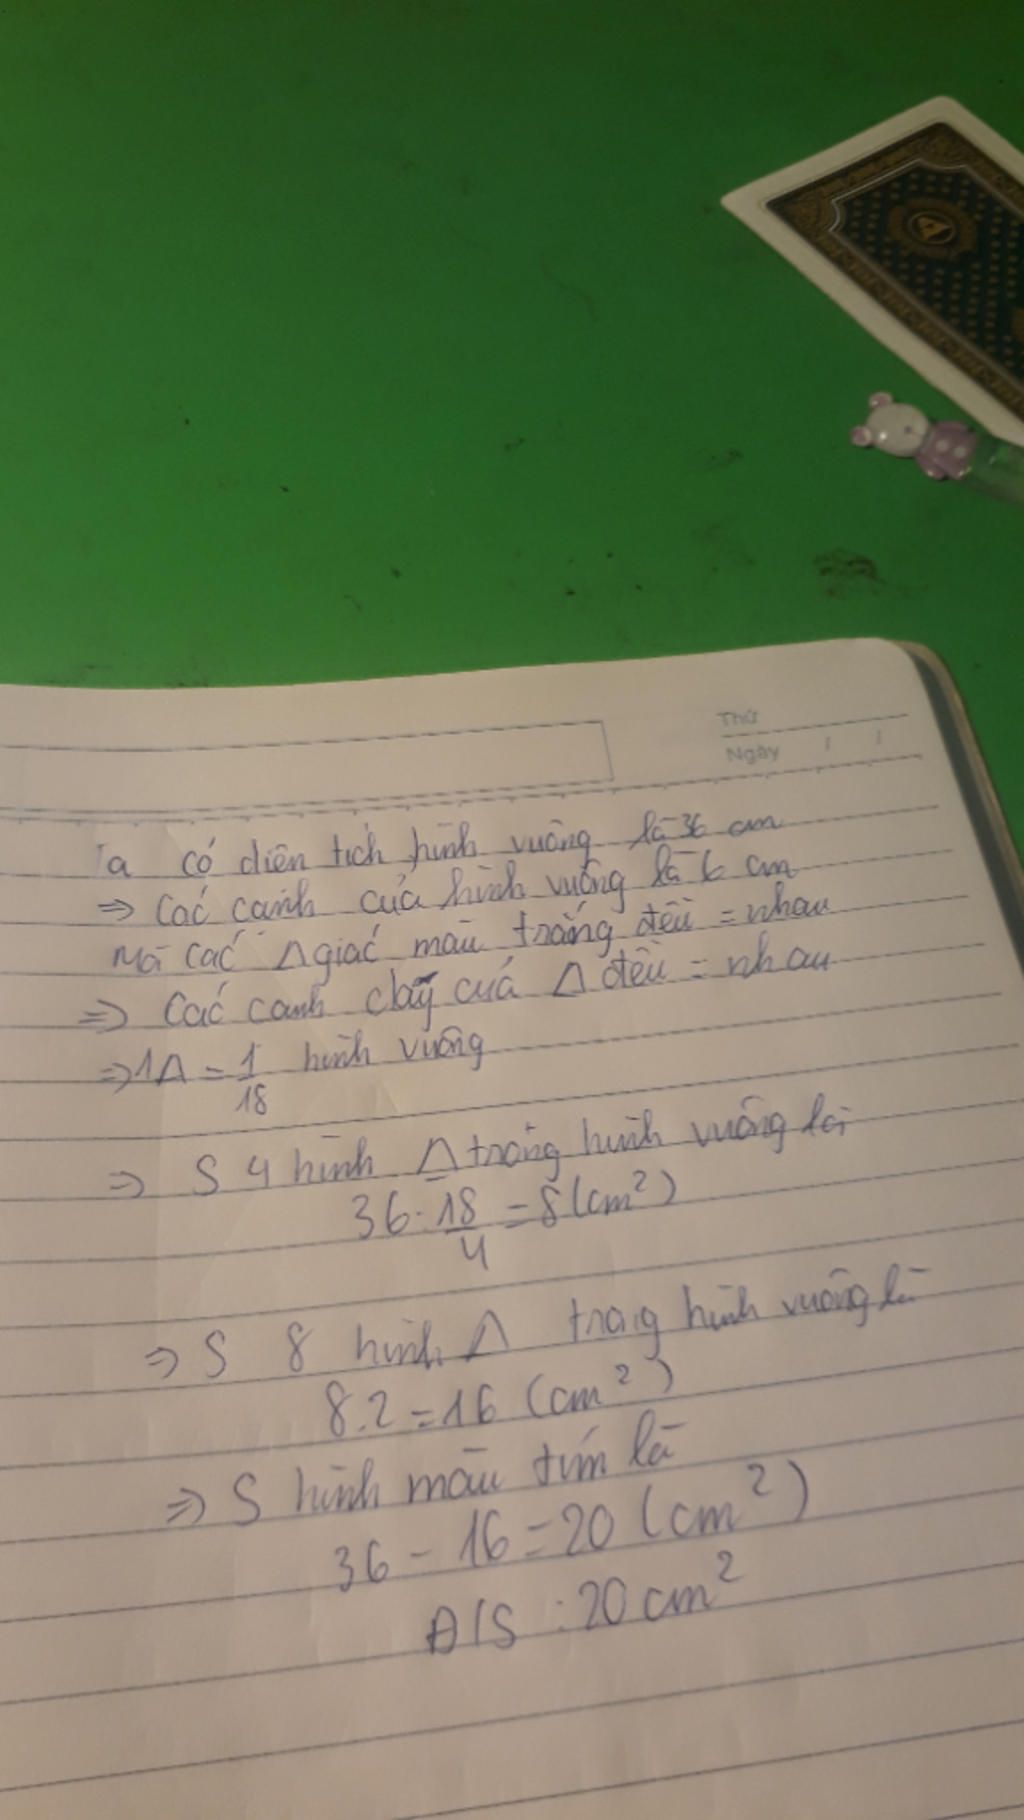 Thứ
Ngày / /
Ta có diên tích hình vuông là 36 cm
=> Các cạnh của hình vuông là 6 cm
Mà các Δ giác màu trắng đều = nhau
=> Các cạnh đáy của Δ đều = nhau
=> 1Δ = 1/18 hình vuông
=> S 4 hình Δ trong hình vuông là
36 . 18/4 = 8 (cm²)
=> S 8 hình Δ trong hình vuông là
8.2 = 16 (cm²)
=> S hình màu tím là
36 - 16 = 20 (cm²)
Đ/S : 20 cm²